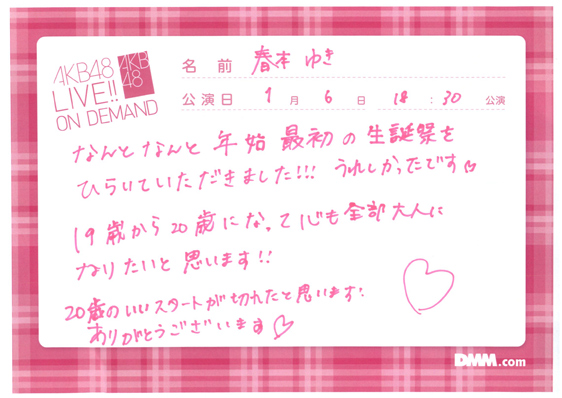 AKB48
LIVE!!
ON DEMAND
AKB
48
名前 春本 ゆき
公演日 1月 6日 18:30 公演
なんと なんと 年始 最初 の 生誕祭を
ひらいていただきました!!! うれしかったです♡
19歳から20歳になって心も全部大人に
なりたいと 思います!!
20歳のいいスタートが切れたと思います!
ありがとうございます♡
DMM.com